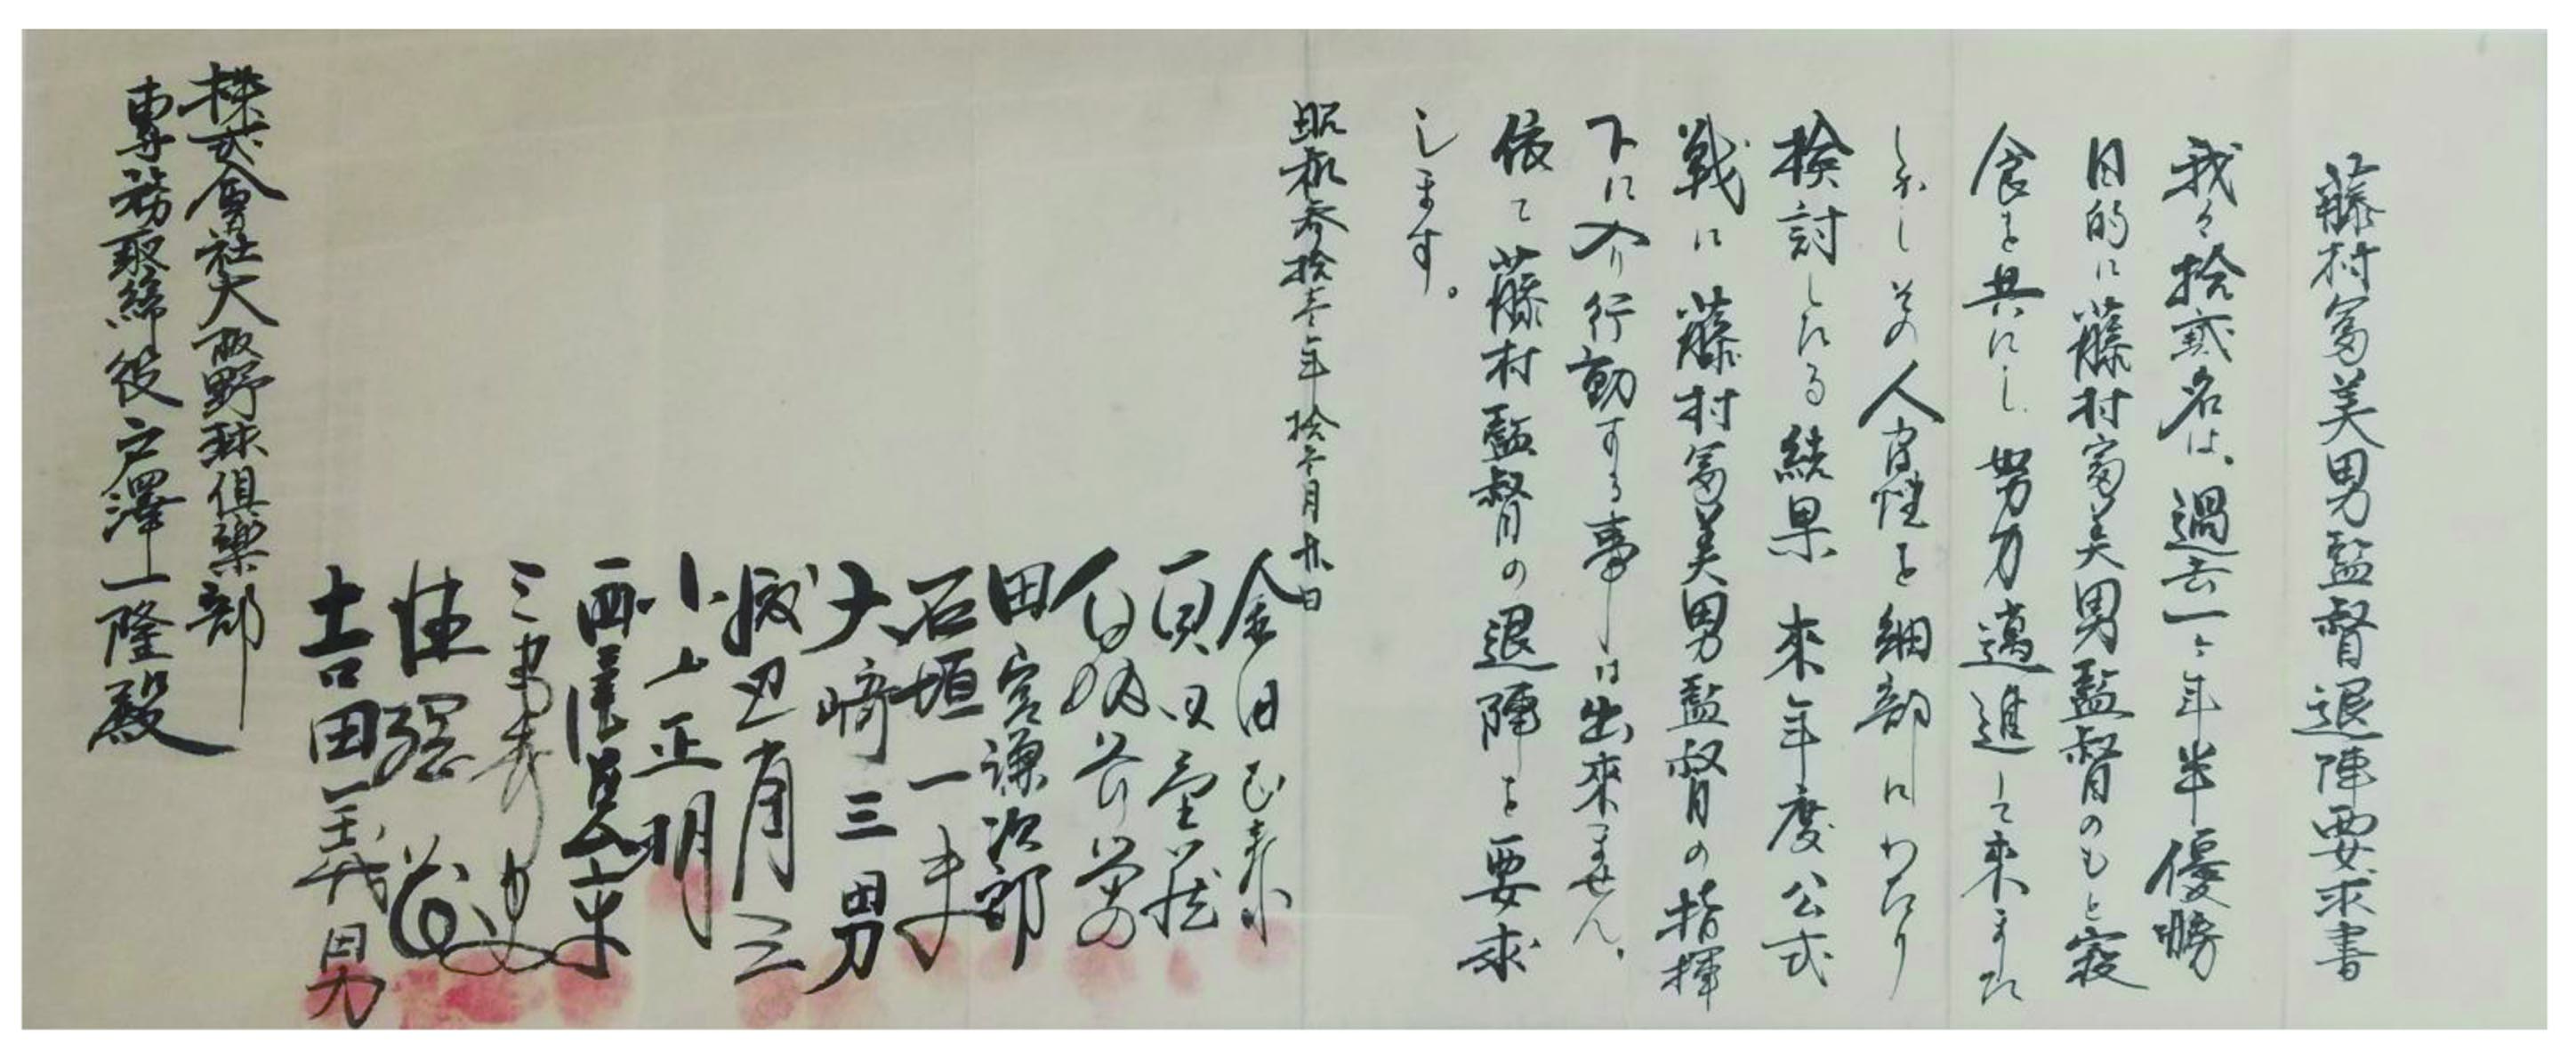 藤村富美男監督退陣要求書
我々拾貳名は、過去一ヶ年半優勝
目的に藤村富美男監督のもと寝
食を共にし努力邁進して来ました
しかしその人間性を細部にわたり
検討したる結果来年度公式
戦に藤村富美男監督の指揮
下に入り行動する事は出來ません、
依て藤村監督の退陣を要求
します。
昭和参拾壱年拾壱月 日
金田正泰
真田重蔵
白坂長栄
田宮謙次郎
石垣一夫
大崎三男
渡辺省三
小山正明
西尾慈高
三船
吉田義男
株式會社大阪野球倶樂部
専務取締役戸澤一隆殿